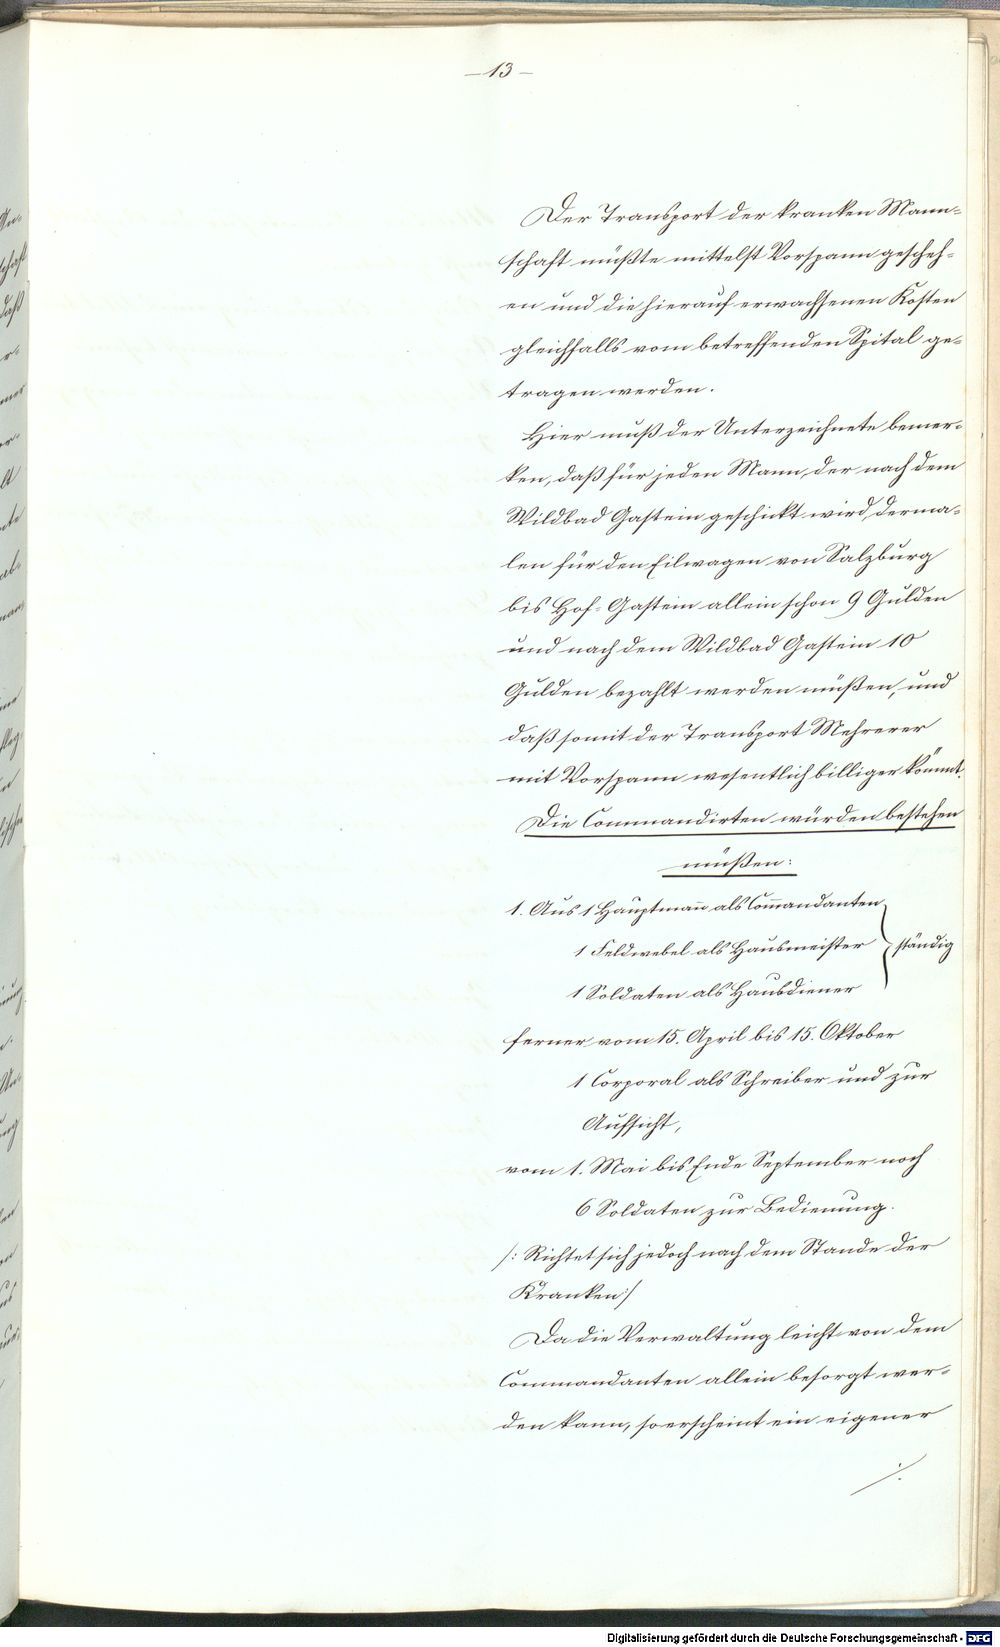 – 13 –
Der Transport der kranken Mann=
schaft müßte mittelst Vorspann gescheh=
en und die hierauf erwachsenen Kosten
gleichfalls vom betreffenden Spital ge=
tragen werden.
Hier muß der Unterzeichnete bemer=
ken, daß für jeden Mann, der nach dem
Wildbad Gastein geschickt wird, derma=
len für den Eilwagen von Salzburg
bis Hof=Gastein allein schon 9 Gulden
und nach dem Wildbad Gastein 10
Gulden bezahlt werden müßen, und
daß somit der Transport Mehrerer
mit Vorspann wesentlich billiger kömmt.
Die Commandirten würden bestehen
müßen:
1. Aus 1 Hauptmann als Commandanten
1 Feldwebel als Hausmeister } ständig
1 Soldaten als Hausdiener
ferner vom 15. April bis 15. Oktober
1 Corporal als Schreiber und zur
Aufsicht,
vom 1. Mai bis Ende September noch
6 Soldaten zur Bedienung.
/: Richtet sich jedoch nach dem Stande der
Kranken :/
Da die Verwaltung leicht von dem
Commandanten allein besorgt wer=
den kann, so erscheint ein eigener
./.
Digitalisierung gefördert durch die Deutsche Forschungsgemeinschaft - DFG